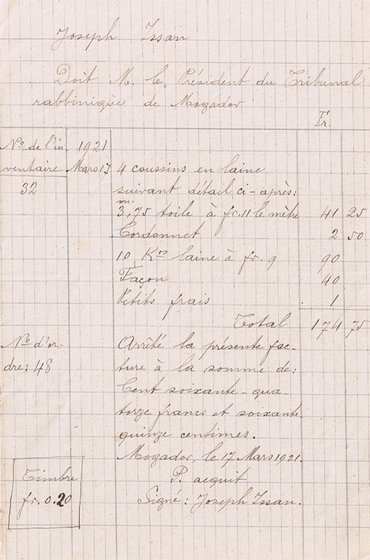 Joseph Issan
Doit M. le Président du Tribunal
rabbinique de Mogador
Fr.
No de l'in- 1921
ventaire Mars 17 4 coussins en laine
32 suivant détail ci-après:
m.
3,75 toile à fr. 11 le mètre 41 25
Cordonnet 2 50
10 Kos laine à fr. 9 90
Façon 40
Petits frais 1
Total 174 75
No d'or- Arrêté la présente fac-
dre: 48 ture à la somme de:
Cent soixante-qua-
torze francs et soixante
quinze centimes.
Mogador, le 17 Mars 1921.
P. acquit
Signé: Joseph Issan.
Timbre
fr. 0.20